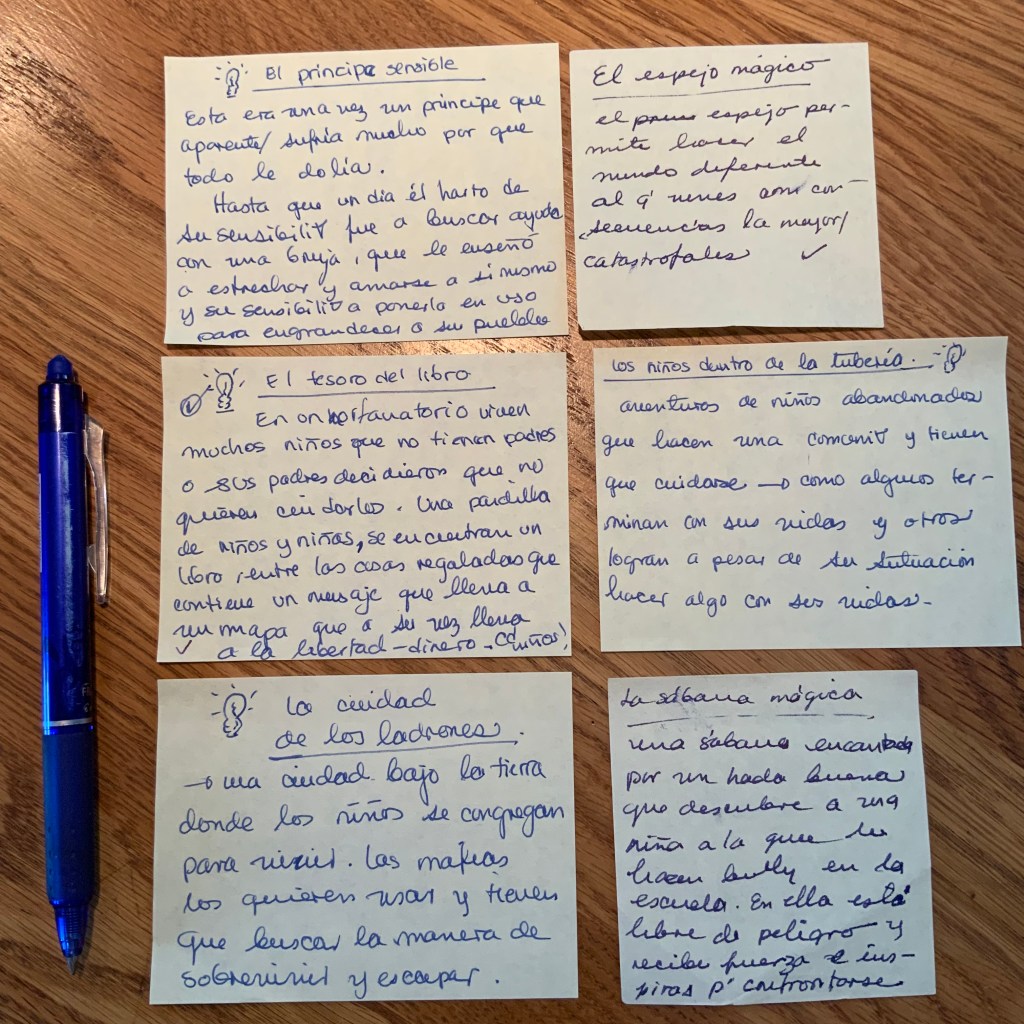 El principe sensible
Esta era una vez un principe que
aparente/ sufría mucho por que
todo le dolía.
Hasta que un dia él harto de
su sensibilit fue a buscar ayuda
con una bruja, que le enseñó
a estrechar y amarse a si mismo
y su sensibilit a ponerla en uso
para engrandecer a su pueblo
El espejo mágico
el espejo per-
mite hacer el
mundo diferente
al q' vemos con con-
secuencias la mayor/
catastrofales
El tesoro del libro
En on horfanatorio viven
muchos niños que no tienen padres
o sus padres decidieron que no
quieren cuidarlos. Una pandilla
de niños y niñas, se encuentran un
libro, entre las cosas regaladas que
contiene un mensaje que lleva a
un mapa que a su vez lleva
a la libertad - dinero
los niños dentro de la tubería.
aventuras de niños abandonados
que hacen una comunit y tienen
que cuidarse → como algunos ter-
minan con sus vidas y otros
logran a pesar de su situación
hacer algo con sus vidas-
La ciudad
de los ladrones.
→ una ciudad bajo la tierra
donde los niños se congregan
para vivir. Las mafias
los quieren usar y tienen
que buscar la manera de
sobrevivir y escapar.
La sábana mágica
una sábana encantada
por un hada buena
que descubre a una
niña a la que le
hacen bully en la
escuela. En ella está
libre de peligro y
recibe fuerza e ins-
piras p' confrontarse